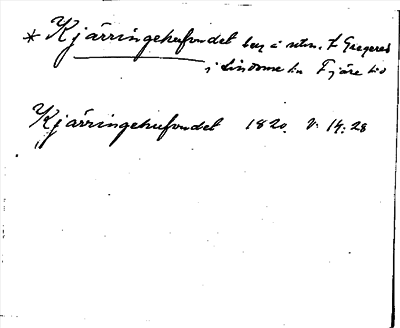 * Kjärringehufvudet ber. å utm. t Gregered
i Lindome sn Fjäre hd
Kjärringehufvudet 1820. V: 14:28